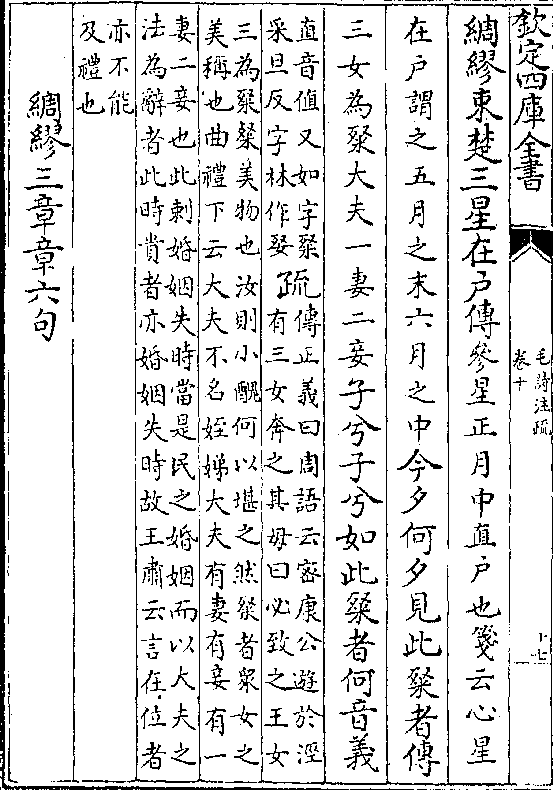 欽定四庫全書
毛詩注疏
卷十
十七
綢繆束楚三星在戸傳參星正月中直戸也箋云心星
在戸謂之五月之末六月之中今夕何夕見此粲者傳
三女為粲大夫一妻二妾子兮子兮如此粲者何音義
直音值又如字粲
采旦反字林作㛑
疏
傳正義曰周語云密康公遊於涇
有三女奔之其母曰必致之王女
三為粲粲美物也汝則小醜何以堪之然粲者衆女之
美稱也曲禮下云大夫不名姪娣大夫有妻有妾有一
妻二妾也此刺婚姻失時當是民之婚姻而以大夫之
法為辭者此時貴者亦婚姻失時故王肅云言在位者
亦不能
及禮也
綢繆三章章六句